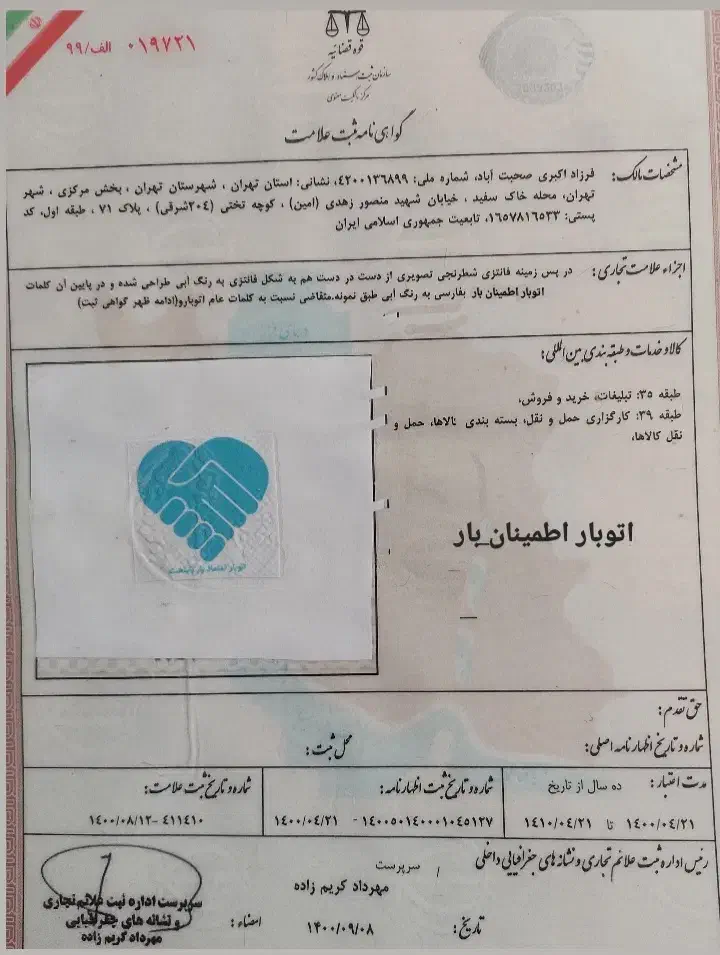 ۰۱۹۷۲۱ الف/۹۹
قوه قضائیه
سازمان ثبت اسناد و املاک کشور
مرکز مالکیت معنوی
گواهی نامه ثبت علامت
مشخصات مالک: فرزاد اکبری صحبت آباد، شماره ملی: ۴۲۰۰۱۳۶۸۹۹، نشانی: استان تهران ، شهرستان تهران ، بخش مرکزی ، شهر
تهران، محله خاک سفید ، خیابان شهید منصور زهدی (امین) ، کوچه تختی (۲۰۴شرقی) ، پلاک ۷۱ ، طبقه اول، کد
پستی: ۱۶۵۷۸۱۶۵۳۳، تابعیت جمهوری اسلامی ایران
اجزاء علامت تجاری: در پس زمینه فانتزی شطرنجی تصویری از دست در دست هم به شکل فانتزی به رنگ آبی طراحی شده و در پایین آن کلمات
اتوبار اطمینان بار بفارسی به رنگ آبی طبق نمونه.متقاضی نسبت به کلمات عام اتوبارو(ادامه ظهر گواهی ثبت)
کالا و خدمات و طبقه بندی بین المللی:
طبقه ۳۵: تبلیغات، خرید و فروش،
طبقه ۳۹: کارگزاری حمل و نقل، بسته بندی کالاها، حمل و
نقل کالاها،
اتوبار اطمینان_بار
اتوبار اعتماد بار پایتخت
حق تقدم:
شماره و تاریخ اظهارنامه اصلی: محل ثبت:
مدت اعتبار: ده سال از تاریخ
۱۴۰۰/۰۴/۲۱ تا ۱۴۱۰/۰۴/۲۱
شماره و تاریخ ثبت اظهارنامه:
۱۴۰۰۵۰۱۴۰۰۰۱۰۴۵۱۲۷ - ۱۴۰۰/۰۴/۲۱
شماره و تاریخ ثبت علامت:
۴۱۱۴۱۰ -۱۴۰۰/۰۸/۱۲
رئیس اداره ثبت علائم تجاری و نشانه های جغرافیایی داخلی / سرپرست
مهرداد کریم زاده
تاریخ: ۱۴۰۰/۰۹/۰۸ امضاء:
سرپرست اداره ثبت علائم تجاری
و نشانه های جغرافیایی
مهرداد کریم زاده